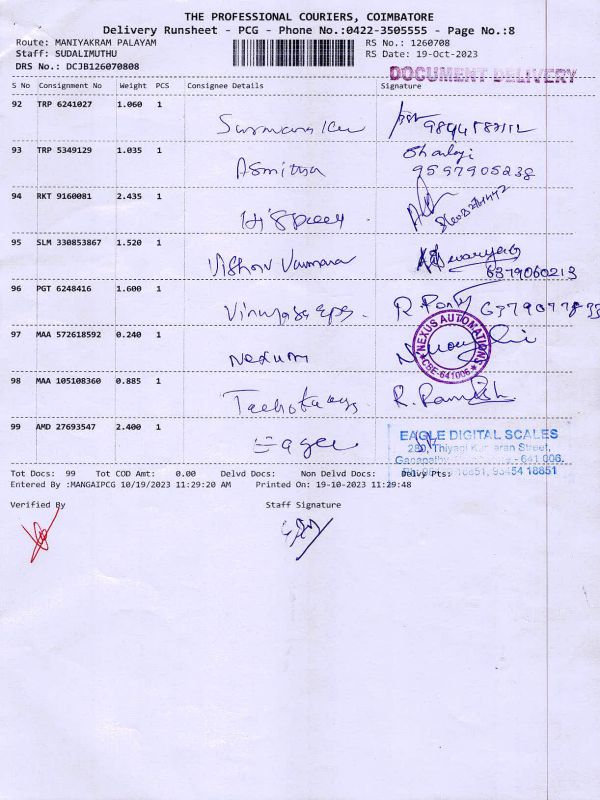 THE PROFESSIONAL COURIERS, COIMBATORE
Delivery Runsheet - PCG - Phone No.:0422-3505555 - Page No.:8
Route: MANIYAKRAM PALAYAM RS No.: 1260708
Staff: SUDALIMUTHU RS Date: 19-Oct-2023
DRS No.: DCJB126070808
DOCUMENT DELIVERY
S No Consignment No Weight PCS Consignee Details Signature
92 TRP 6241027 1.060 1
93 TRP 5349129 1.035 1 Asmitha
9597905238
94 RKT 9160081 2.435 1
95 SLM 330853867 1.520 1
6379060213
96 PGT 6248416 1.600 1
97 MAA 572618592 0.240 1 Nexum
NEXUS AUTOMATIONS
CBE-641006
98 MAA 105108360 0.885 1 R. Ramesh
99 AMD 27693547 2.400 1 Eagle
EAGLE DIGITAL SCALES
280, Thiyagi Kumaran Street,
Ganapathy - 641 006.
18851, 93454 18851
Tot Docs: 99 Tot COD Amt: 0.00 Delvd Docs: Non Delvd Docs: Delvy Pts:
Entered By :MANGAIPCG 10/19/2023 11:29:20 AM Printed On: 19-10-2023 11:29:48
Verified By Staff Signature